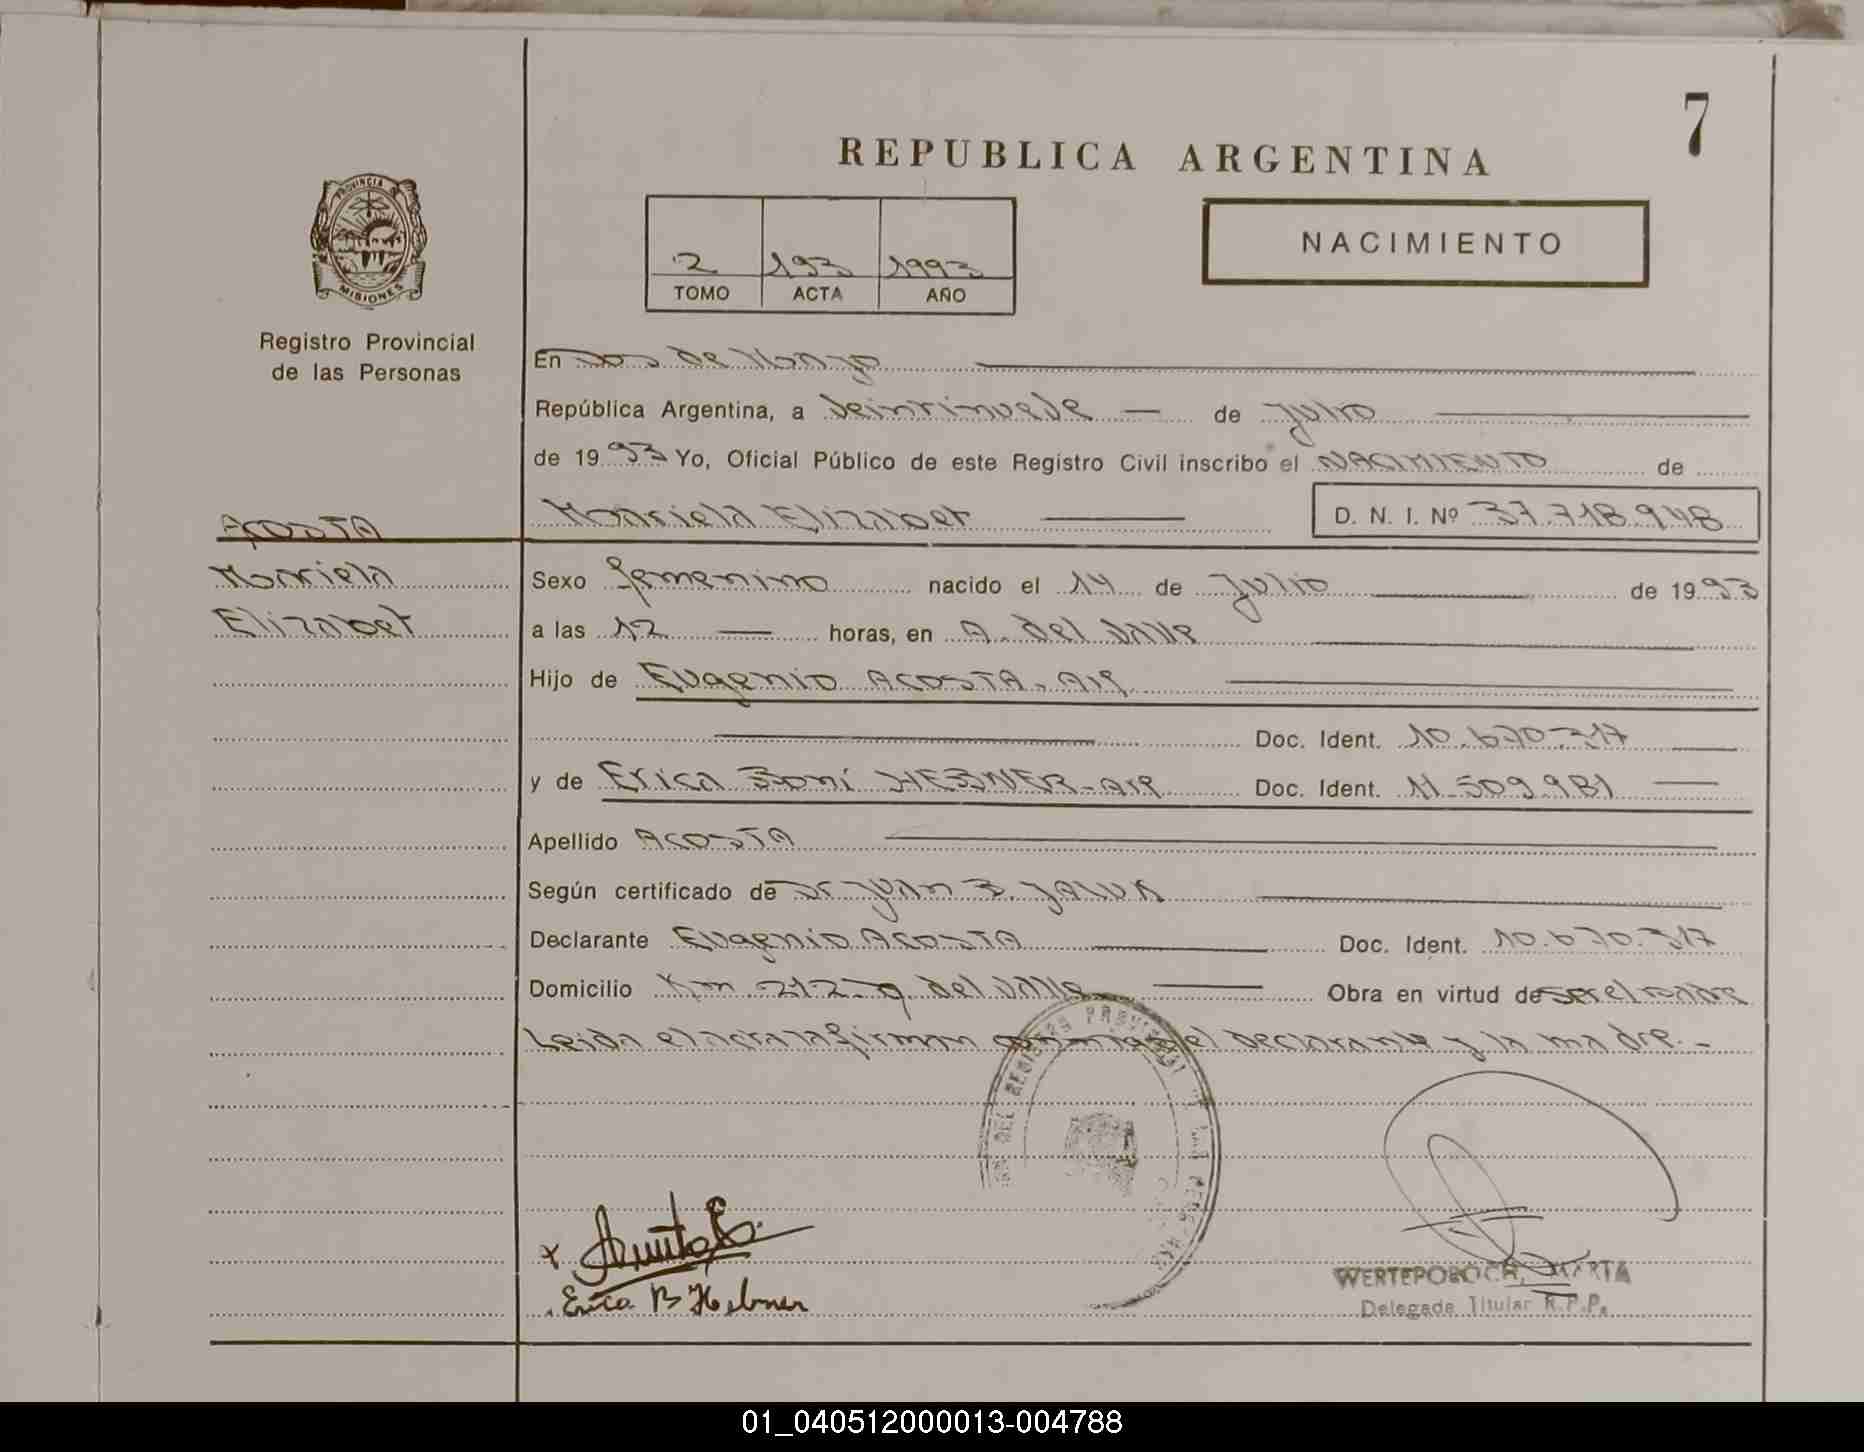 7
REPUBLICA ARGENTINA
PROVINCIA DE
MISIONES
Registro Provincial
de las Personas
2 193 1993
TOMO ACTA AÑO
NACIMIENTO
En Dos de Mayo
República Argentina, a veintinueve de Julio
de 1993 Yo, Oficial Público de este Registro Civil inscribo el NACIMIENTO de
Mariela Elizabet D. N. I. Nº 37.718.948
ACOSTA
Mariela
Elizabet
Sexo femenino nacido el 14 de Julio de 1993
a las 12 horas, en A. del Valle
Hijo de Eugenio ACOSTA - Arg
Doc. Ident. 10.670.317
y de Erica Boni HEBNER - Arg Doc. Ident. 11.509.981
Apellido ACOSTA
Según certificado de Dr Juan B.
Declarante Eugenio ACOSTA Doc. Ident. 10.670.317
Domicilio Km 212 - A del Valle Obra en virtud de ser el padre
Leida el acta la firman el declarante y la madre.-
DEL REGISTRO PROVINCIAL DE LAS PERSONAS
x
Erica B Hebner
MARTA
Delegada Titular R.P.P.
01_040512000013-004788